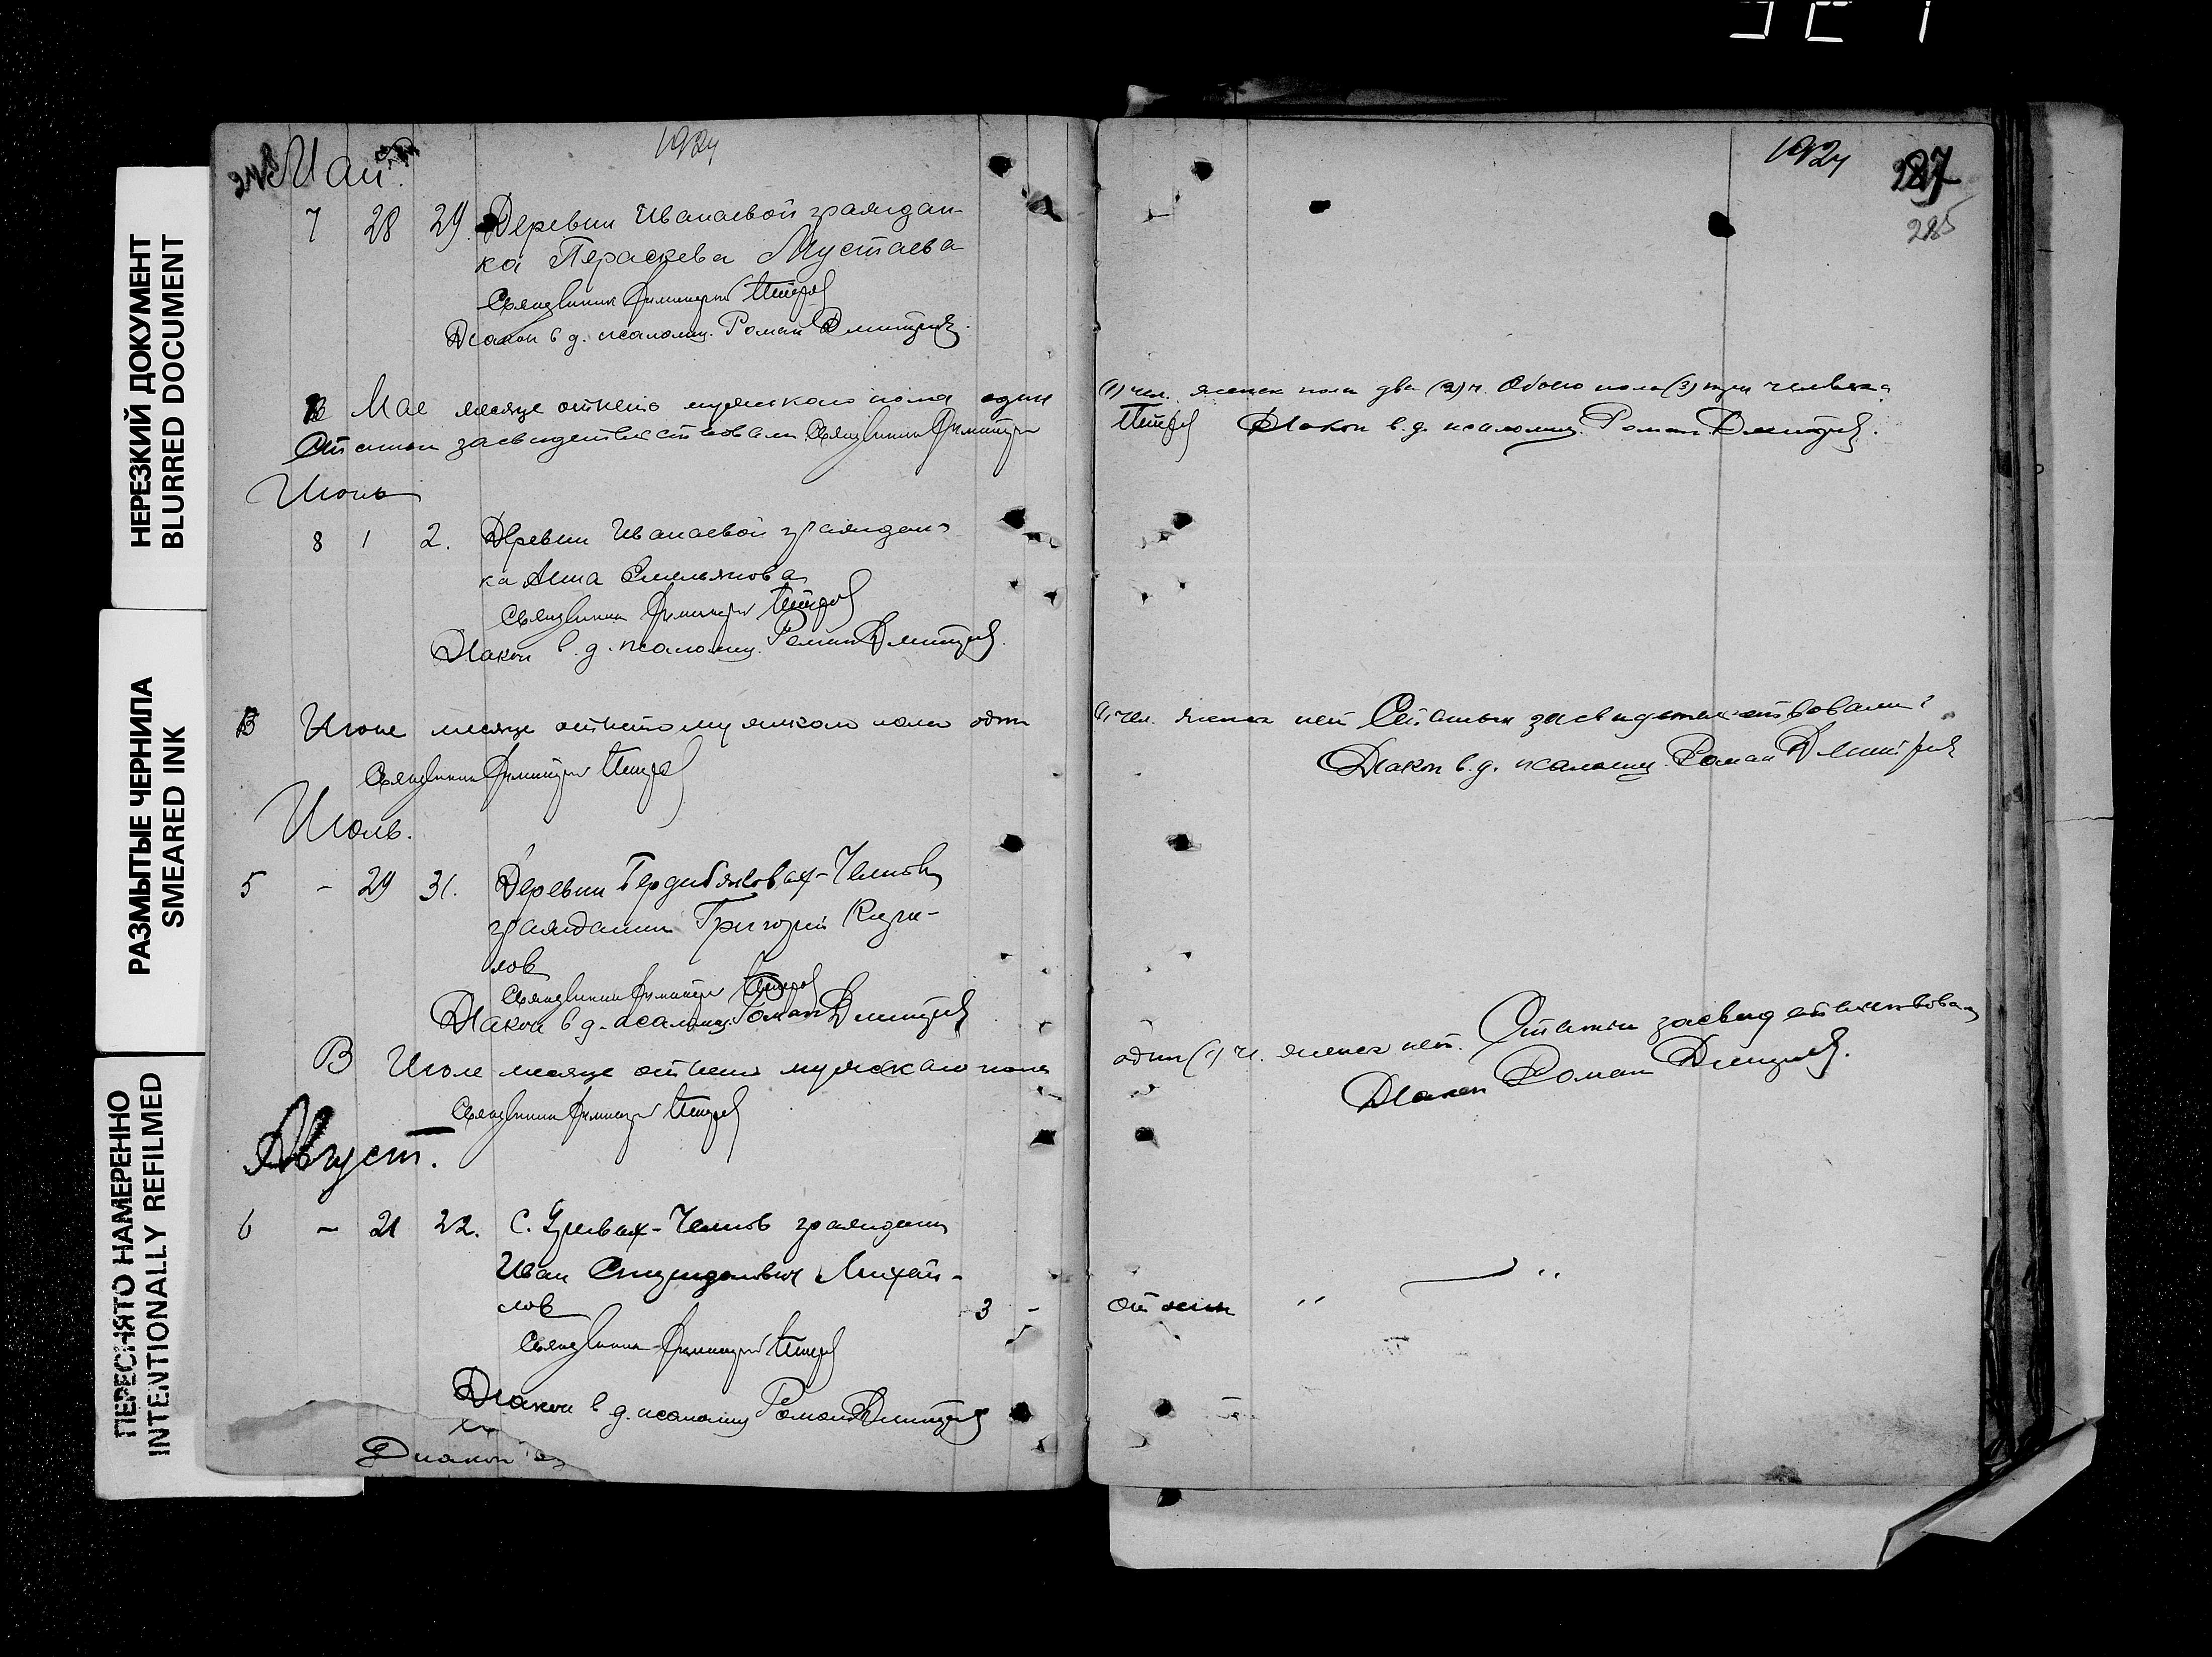 НЕРЕЗКИЙ ДОКУМЕНТ
BLURRED DOCUMENT
РАЗМЫТЫЕ ЧЕРНИЛА
SMEARED INK
ПЕРЕСНЯТО НАМЕРЕННО
INTENTIONALLY REFILMED
Май.
1924
7 28 29. Деревни Иванаевой граждан-
ка Параскева Мустаева
Священник Димитрий Петров
Диакон в д. псаломщ. Роман Дмитриев.
В Мае месяце отпето мужскаго пола один
Статьи засвидетельствовали Священник Димитрий
Июнь
8 1 2. Деревни Иванаевой граждан-
ка Анна Емельянова
Священник Димитрий Петров
Диакон в. д. псаломщ. Роман Дмитриев.
В Июне месяце отпето мужскаго пола один
Священник Димитрий Петров
Июль.
5 - 29 31. Деревни
гражданин Григорий Кири-
лов
Священник Димитрий Петров
Диакон в д. псаломщ. Роман Дмитриев
В Июле месяце отпето мужскаго пола
Священник Димитрий Петров
Август.
6 - 21 22. С. гражданин
Иван Спиридонович Михай-
лов 3 -
Священник Димитрий Петров
Диакон в д. псаломщ Роман Дмитриев
Диакон
1924
287
285
(1) чел. женск пола два (2) ч. Обоего пола (3) три человека
Петров Диакон в. д. псаломщ. Роман Дмитриев.
(1) чел. женск нет Статьи засвидетельствовали:
Диакон в. д. псаломщ. Роман Дмитриев
один (1) ч. женск нет. Статьи засвидетельствовали
Диакон Роман Дмитриев.